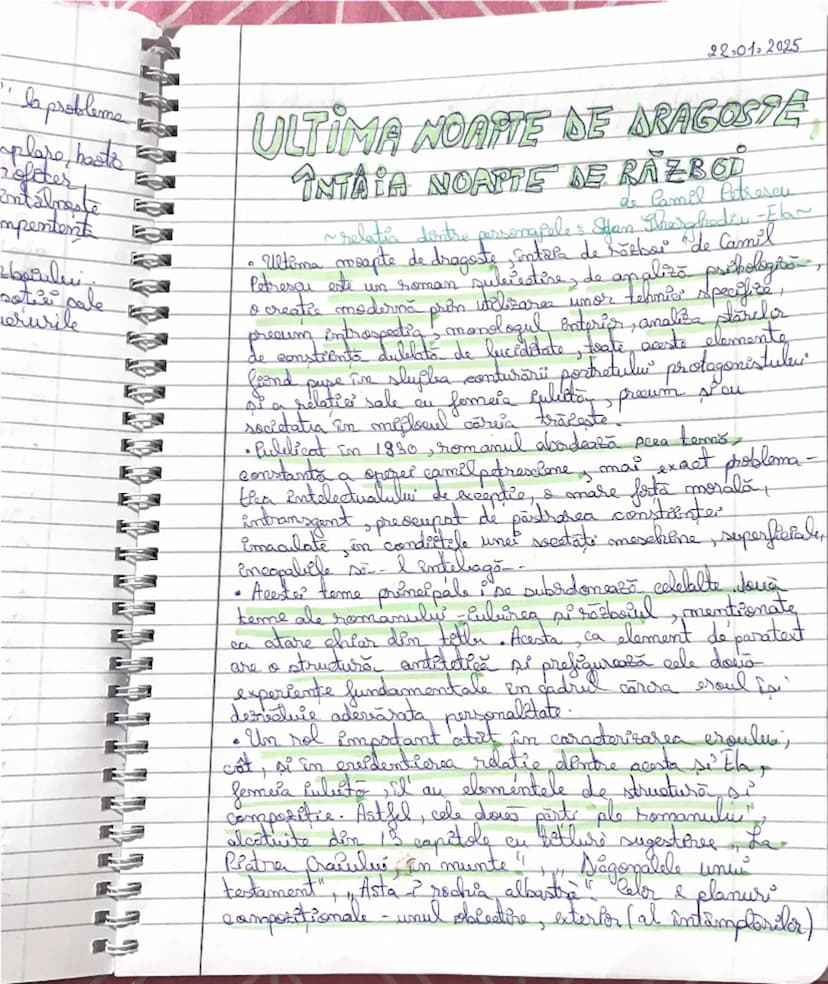 " la problema
aplare, haotic
sufletes
întâlnește
mpertență
zboiului.
sotiei sale
erurile
22.01.2025
ULTIMA NOAPTE DE DRAGOSTE,
ÎNTÂIA NOAPTE DE RĂZBOI
de Camil Petrescu
~relația dintre personaje: Ștefan Gheorghidiu - Ela~
• "Ultima noapte de dragoste, întâia de război" de Camil
Petrescu este un roman subiectiv, de analiză psihologică,
o creație modernă prin utilizarea unor tehnici specifice,
precum introspecția, monologul interior, analiza stărilor
de conștiință dublată de luciditate, toate aceste elemente
fiind puse în slujba conturării portretului protagonistului
și a relației sale cu femeia iubită, precum și cu
societatea în mijlocul căreia trăiește.
• Publicat în 1930, romanul abordează acea temă
constantă a operei camilpetresciene, mai exact problema-
tica intelectualului de excepție, o mare forță morală,
intransigent, preocupat de păstrarea conștiinței
imaculate, în condițiile unei societăți meschine, superficiale,
incapabile să-l înțeleagă.
• Acestei teme principale i se subordonează celelalte două
teme ale romanului - iubirea și războiul, menționate
ca atare chiar din titlu. Acesta, ca element de paratext
are o structură antitetică și prefigurează cele două
experiențe fundamentale în cadrul cărora eroul își
dezvăluie adevărata personalitate.
• Un rol important atât în caracterizarea eroului,
cât, și în evidențierea relației dintre acesta și Ela,
femeia iubită, îl au elementele de structură și
compoziție. Astfel, cele două părți ale romanului",
alcătuite din 13 capitole cu titluri sugestive „La
Piatra Craiului, în munte", „Diagonalele unui
testament", „Asta-i rochia albastră" Celor 2 planuri
compoziționale - unul obiectiv, exterior (al întâmplărilor)